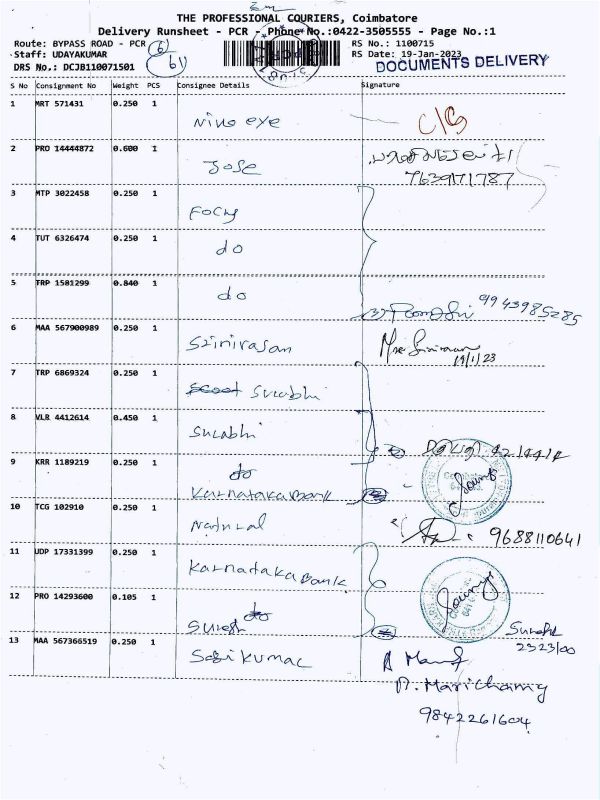 THE PROFESSIONAL COURIERS, Coimbatore
Delivery Runsheet - PCR - Phone No.:0422-3505555 - Page No.:1
Route: BYPASS ROAD - PCR 6 RS No.: 1100715
Staff: UDAYAKUMAR RS Date: 19-Jan-2023
DRS No.: DCJB110071501 61 DOCUMENTS DELIVERY
S No Consignment No Weight PCS Consignee Details Signature
1 MRT 571431 0.250 1
Nino eye
2 PRO 14444872 0.600 1
Jose
7639171787
3 MTP 3022458 0.250 1
Focus
4 TUT 6326474 0.250 1
do
5 TRP 1581299 0.840 1
do 9943985285
6 MAA 567900989 0.250 1
Srinivasan
19/1/23
7 TRP 6869324 0.250 1
Surabhi
8 VLR 4412614 0.450 1
Surabhi
9 KRR 1189219 0.250 1
do
Karnataka Bank
10 TCG 102910 0.250 1
Natural 9688110641
11 UDP 17331399 0.250 1
Karnataka Bank
12 PRO 14293600 0.105 1
do
Suresh
13 MAA 567366519 0.250 1
Sasikumar
A. Marichamy
9842261604